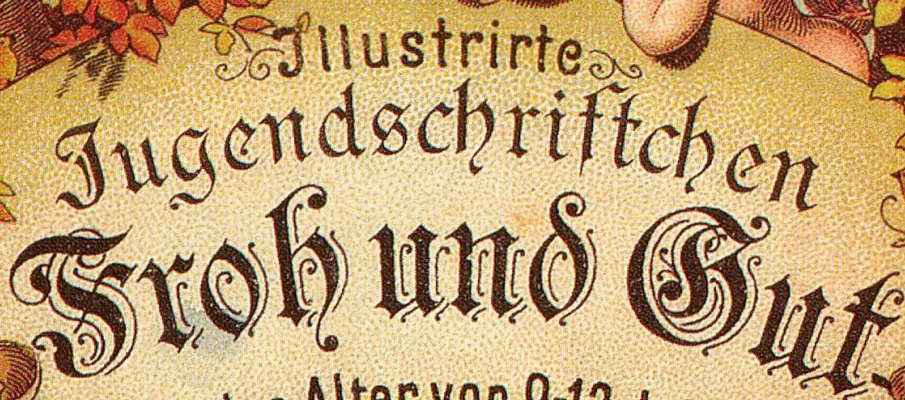 Illustrirte
Jugendschriftchen
Froh und Gut.
Alter von 9-12